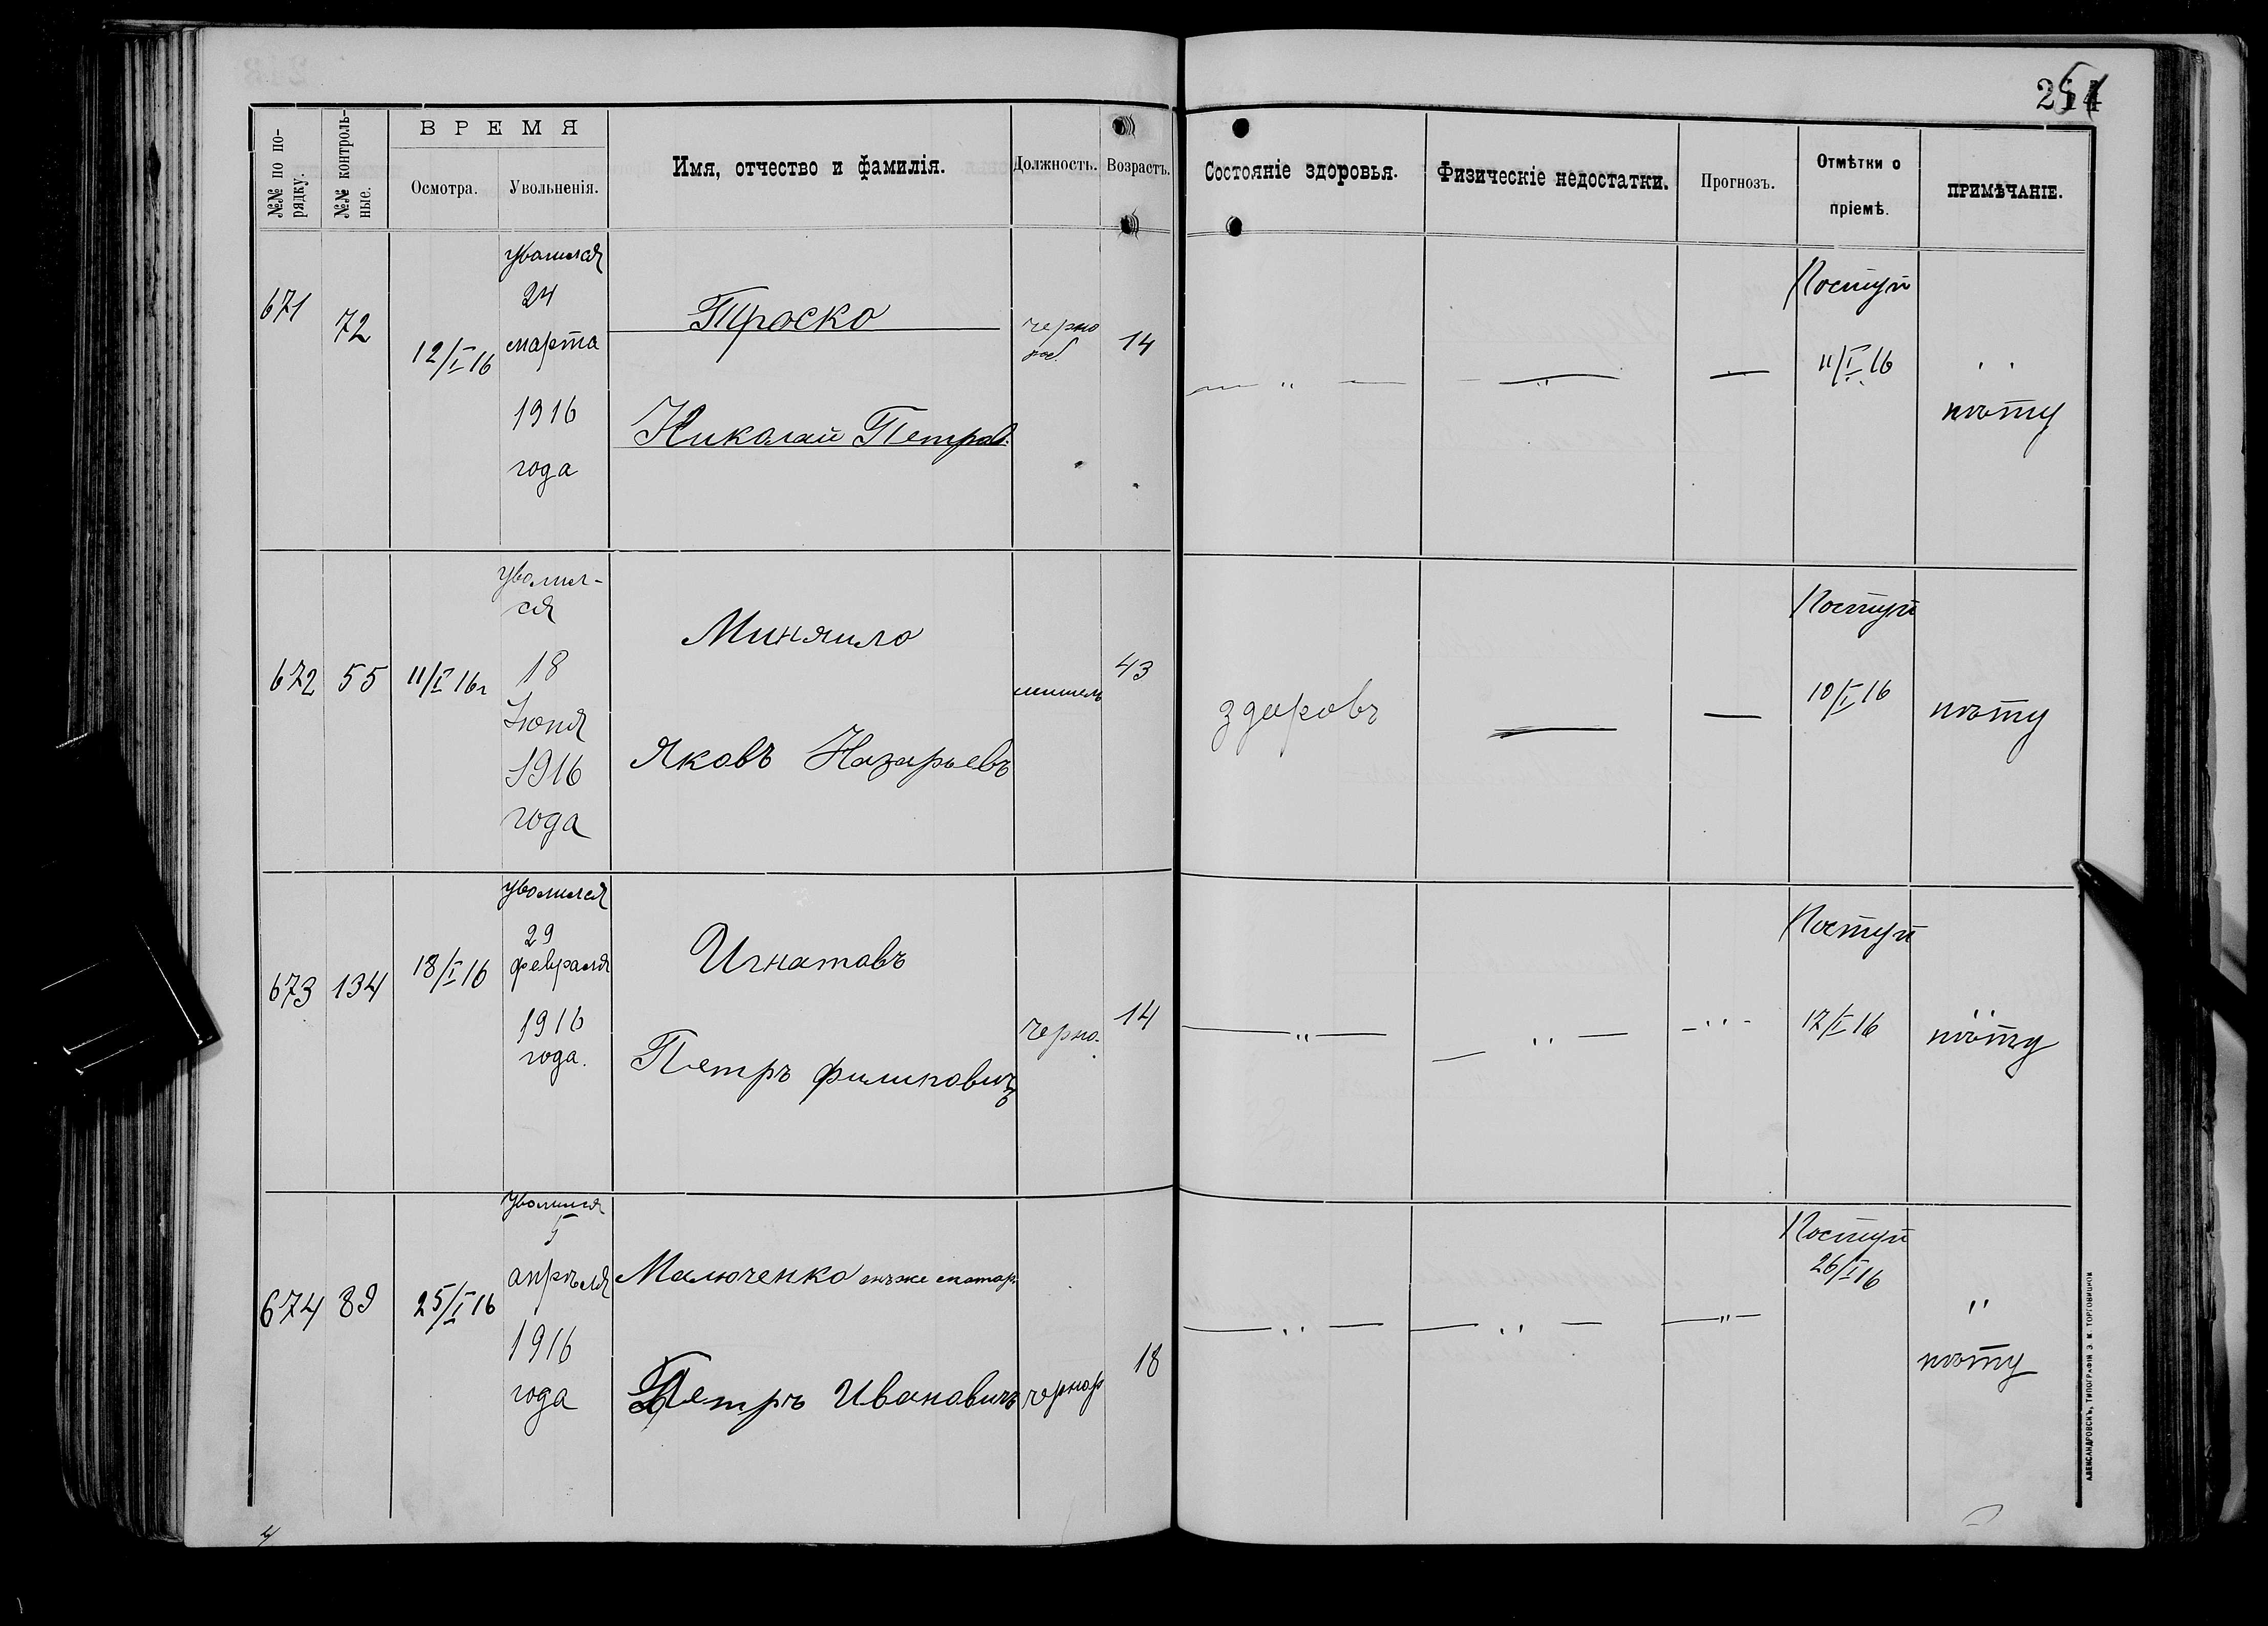 254
№№ по по-
рядку.
№№ контроль-
ные.
ВРЕМЯ
Осмотра.
Увольненія.
Имя, отчество и фамилія.
Должность.
Возрастъ.
Состояніе здоровья.
Физическіе недостатки.
Прогнозъ.
Отмѣтки о
пріемѣ.
ПРИМѢЧАНІЕ.
671
72
12/I 16
уволился
24
марта
1916
года
Проско
Николай Петров.
черно
раб.
14
— " —
— " —
—
Поступ
11/I 16
" 
нѣту
672
55
11/I 16г
уволил-
ся
18
Іюня
1916
года
Миняило
Яковъ Назарьевъ
43
здоровъ
—
—
Поступ
10/I 16
нѣту
673
134
18/I 16
уволился
29
февраля
1916
года.
Игнатовъ
Петръ Филиповичъ
черно.
14
— " —
— " —
— " —
Поступ
12/I 16
"
нѣту
674
89
25/I 16
уволился
5
апрѣля
1916
года
Малюченко
Петръ Ивановичъ
чернор
18
— " —
— " —
— " —
Поступ
26/I 16
"
нѣту
АЛЕКСАНДРОВСКЪ, ТИПОГРАФІЯ З. М. ТОРГОВИЦКОЙ